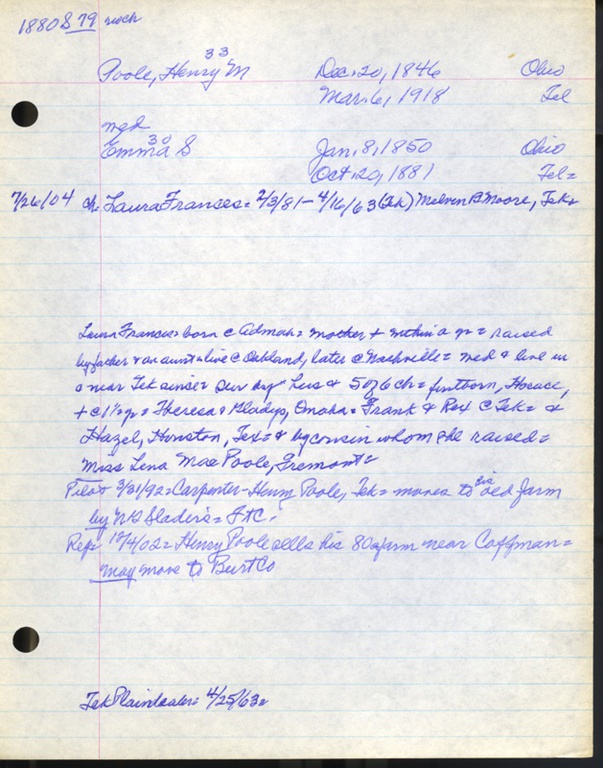 1880 S 79
33
Poole, Henry M Dec. 20, 1846 Ohio
Mar. 6, 1918 Tek
med
30
Emma S Jan. 8, 1850 Ohio
Oct. 20, 1881 Tek=
7/26/04 ch: Laura Frances= 2/3/81 - 4/16/63 (Tek) Melvin B Moore, Tek=
Laura Frances= born c Admah= mother + within a yr= raised
by father & an aunt= live c Oakland, later c Nashville= med & live in
o near Tek since= sur by= hus & 5 of 6 ch= firstborn, Horace,
+ c 1½ yr= Theresa & Gladys, Omaha= Frank & Rex c Tek= &
Hazel, Houston, Tex= & by cousin whom she raised=
Miss Lena Mae Poole, Fremont=
Pilot 3/31/92= Carpenter-Henry Poole, Tek= moves to his old farm
by Slader's= Ft C.
Rep: 12/4/02= Henry Poole sells his 80 a farm near Coffman=
may move to Burt Co
Tek Plaindealer= 4/25/63=